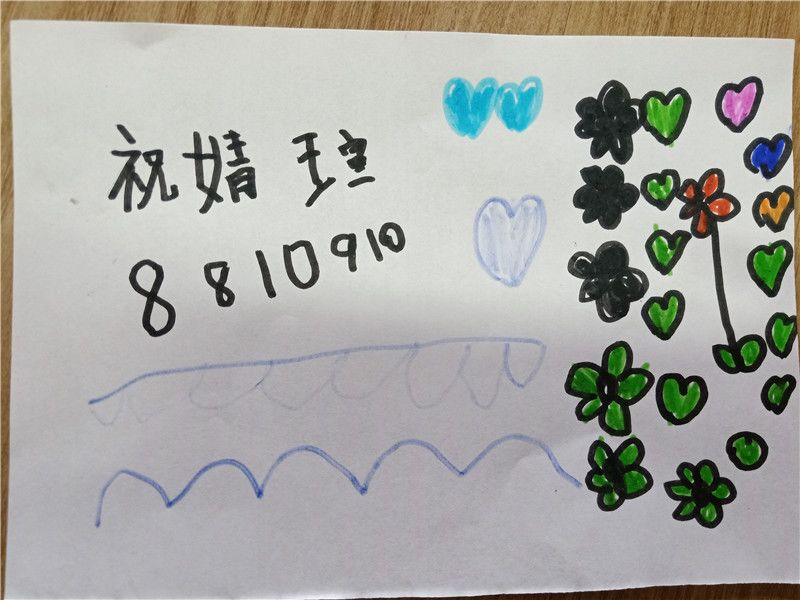 祝婧瑄
8810910